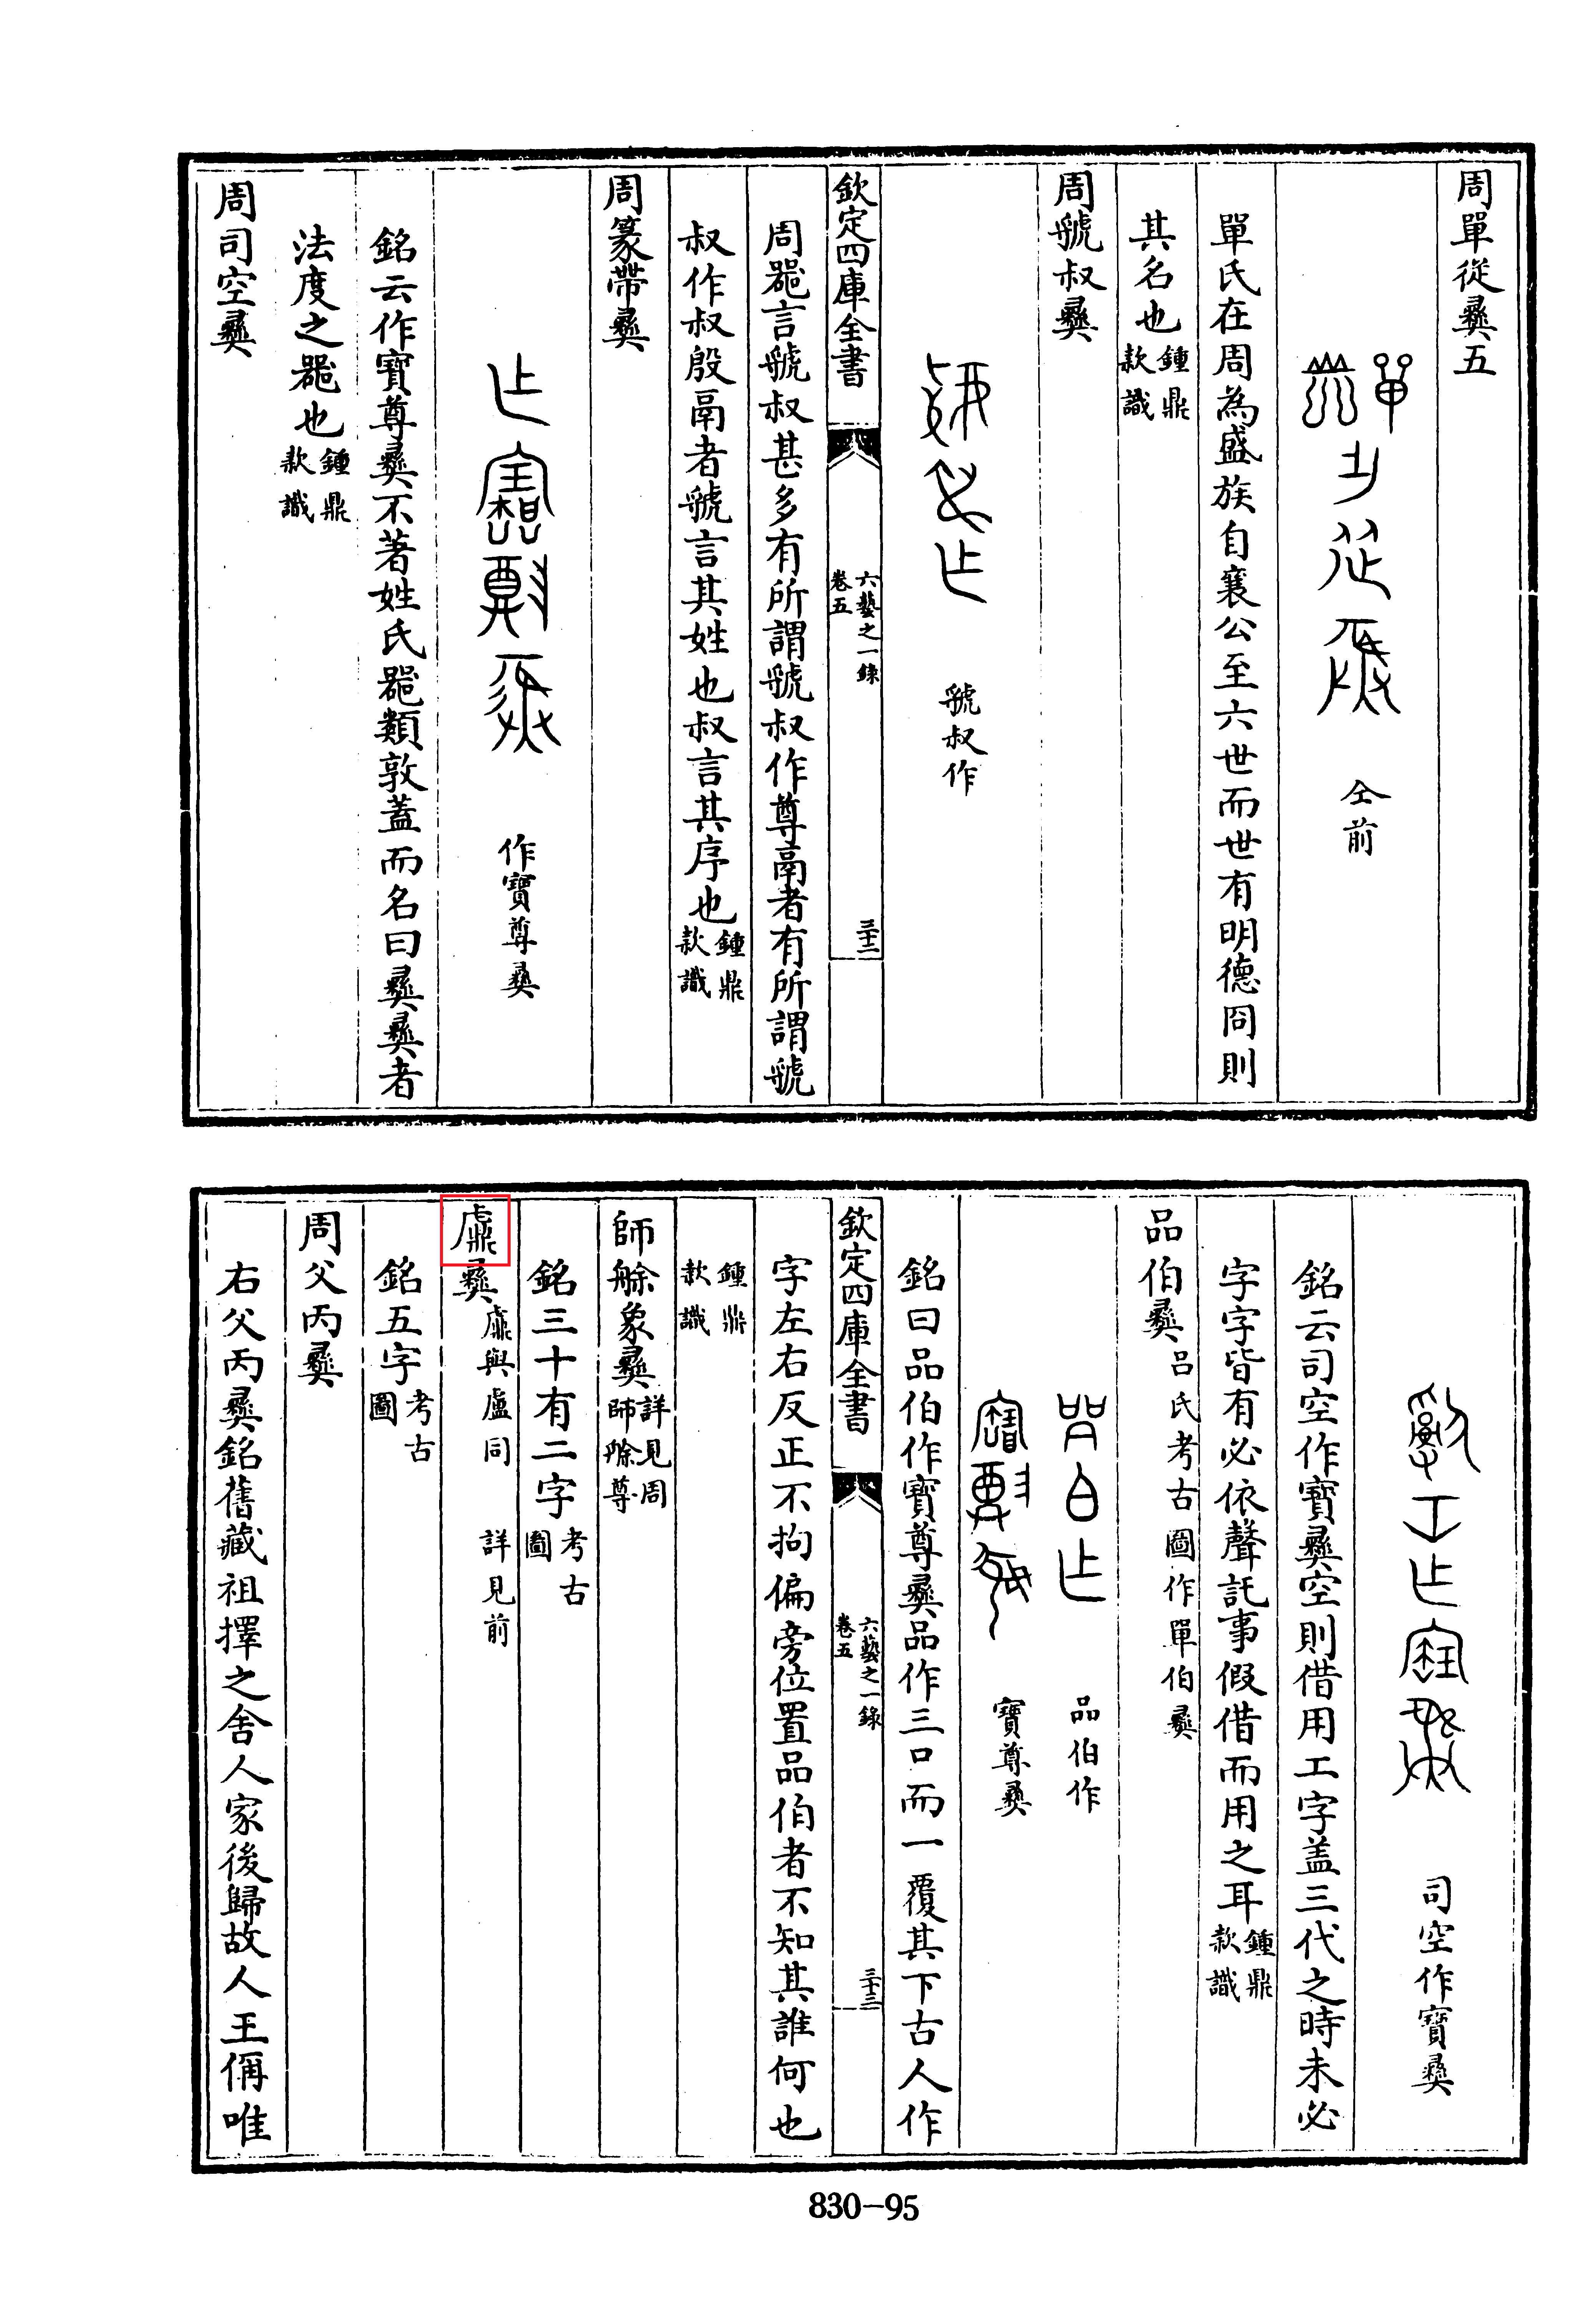 周單從彝五
仝前
單氏在周為盛族自襄公至六世而世有明德冏則
其名也鍾鼎款識
周虢叔彝
虢叔作
欽定四庫全書
六藝之一錄
卷五
三十二
周器言虢叔甚多有所謂虢叔作尊鬲者有所謂虢
叔作叔殷鬲者虢言其姓也叔言其序也鍾鼎款識
周篆帶彝
作寶尊彝
銘云作寶尊彝不著姓氏器類敦蓋而名曰彝彝者
法度之器也鍾鼎款識
周司空彝
司空作寶彝
銘云司空作寶彝空則借用工字盖三代之時未必
字字皆有必依聲託事假借而用之耳鍾鼎款識
品伯彝呂氏考古圖作單伯彝
品伯作
寶尊彝
銘曰品伯作寶尊彝品作三口而一覆其下古人作
欽定四庫全書
六藝之一錄
卷五
三十三
字左右反正不拘偏旁位置品伯者不知其誰何也
鍾鼎款識
師艅象彝詳見周師艅尊
銘三十有二字考古圖
彝與盧同 詳見前
銘五字考古圖
周父丙彝
右父丙彝銘舊藏祖擇之舍人家後歸故人王偁唯
830-95